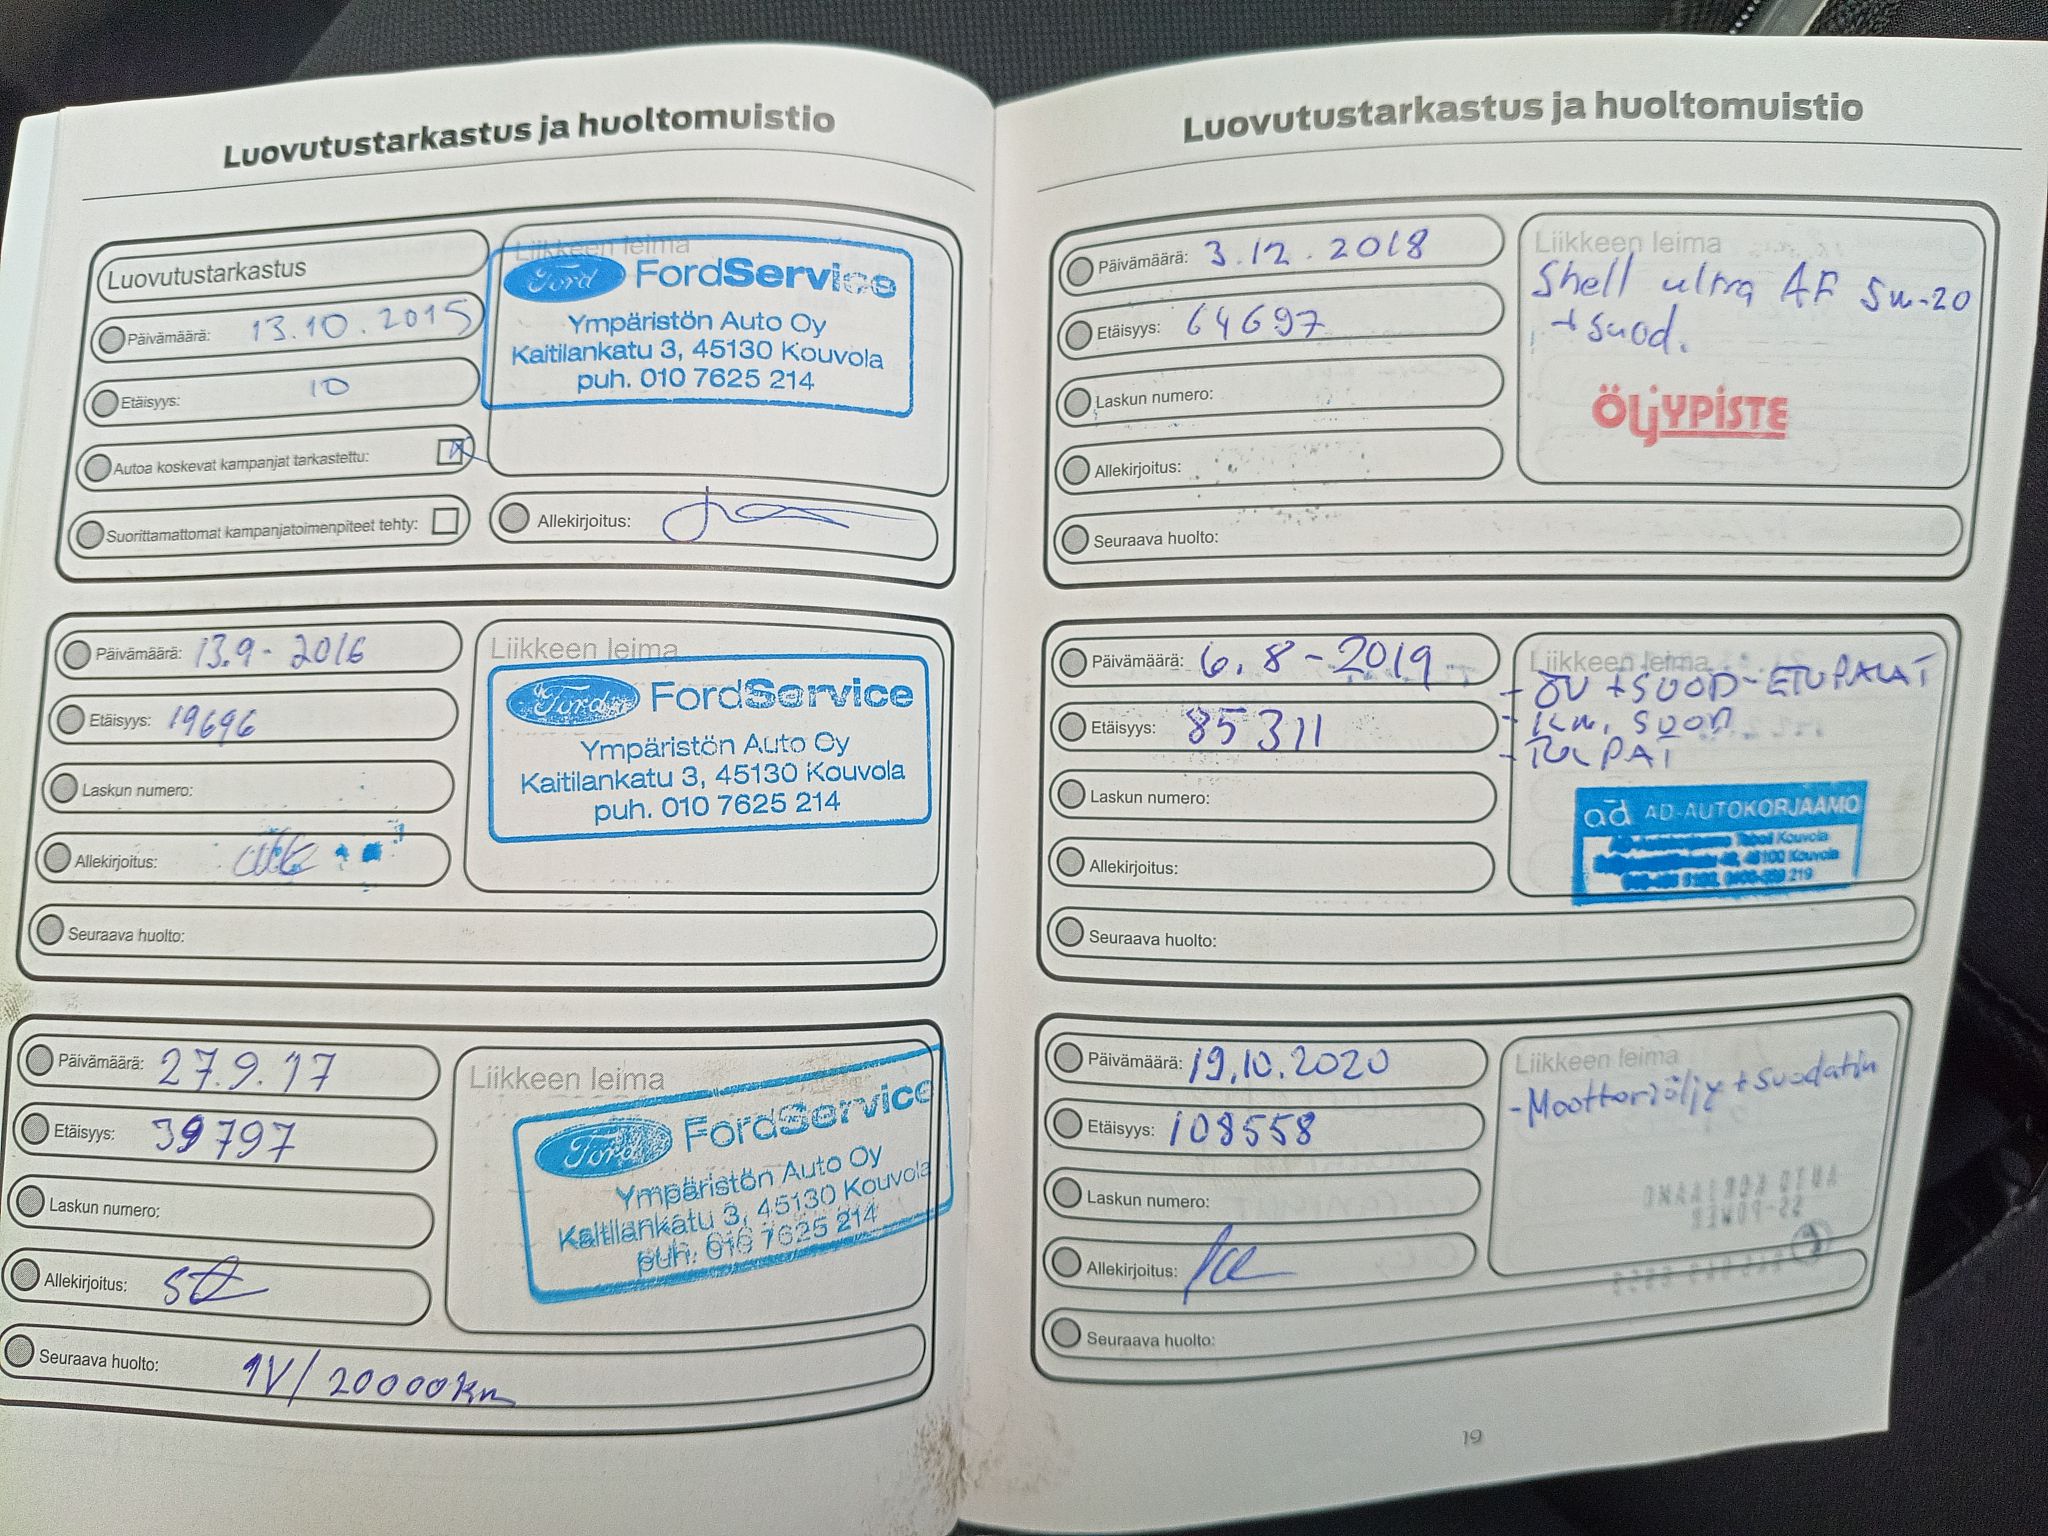 Luovutustarkastus ja huoltomuistio
Luovutustarkastus
Päivämäärä: 13.10.2015
Etäisyys: 10
Autoa koskevat kampanjat tarkastettu:
Suorittamattomat kampanjatoimenpiteet tehty:
Liikkeen leima
Ford FordService
Ympäristön Auto Oy
Kaitilankatu 3, 45130 Kouvola
puh. 010 7625 214
Allekirjoitus:
Päivämäärä: 13.9-2016
Etäisyys: 19696
Laskun numero:
Allekirjoitus:
Seuraava huolto:
Liikkeen leima
Ford FordService
Ympäristön Auto Oy
Kaitilankatu 3, 45130 Kouvola
puh. 010 7625 214
Päivämäärä: 27.9.'17
Etäisyys: 39797
Laskun numero:
Allekirjoitus:
Seuraava huolto: 1V/20000km
Liikkeen leima
Ford FordService
Ympäristön Auto Oy
Kaitilankatu 3, 45130 Kouvola
puh. 010 7625 214
Luovutustarkastus ja huoltomuistio
Päivämäärä: 3.12.2018
Etäisyys: 64697
Laskun numero:
Allekirjoitus:
Seuraava huolto:
Liikkeen leima
Shell ultra AF 5w-20
+ suod.
ÖljYPISTE
Päivämäärä: 6.8-2019
Etäisyys: 85311
Laskun numero:
Allekirjoitus:
Seuraava huolto:
Liikkeen leima
- ÖV + SUOD - ETUPALAT
- SUOD
- TULPAT
ad AD-AUTOKORJAAMO
Kouvola
45100 Kouvola
219
Päivämäärä: 19.10.2020
Etäisyys: 108558
Laskun numero:
Allekirjoitus:
Seuraava huolto:
Liikkeen leima
- Moottoriöljy + suodatin
19